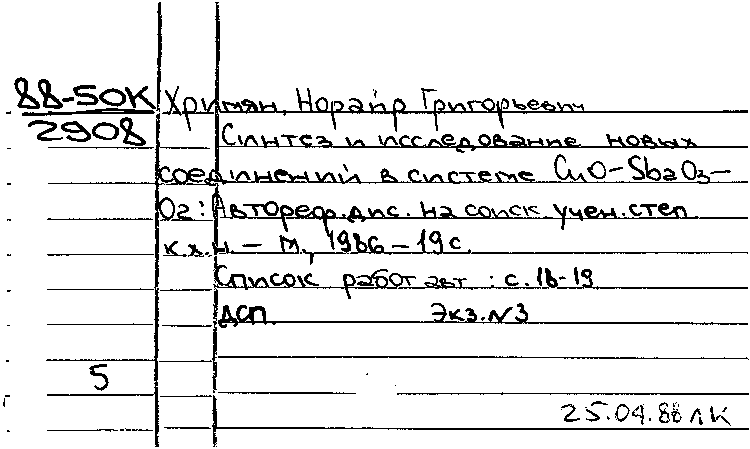 88-50К Хримян, Норайр Григорьевич
2908 Синтез и исследование новых
соединений в системе CuO–Sb2O3–
O2: Автореф. дис. на соиск. учен. степ.
к.х.н. – М., 1986 – 19 с.
Список работ авт.: с. 18-19
ДСП. Экз. №3
5
25.04.88 ЛК